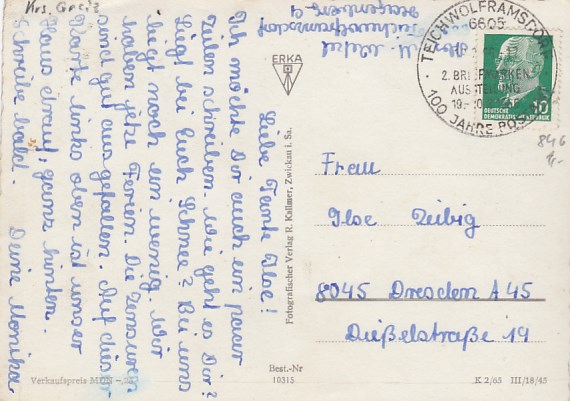 Krs. Greiz
Liebe Tante Ilse!
Ich möchte Dir auch ein paar
Zeilen schreiben. Wie geht es Dir?
Liegt bei Euch Schnee? Bei uns
liegt noch ein wenig. Wir
haben jetzt Ferien. Die Zensuren
sind gut ausgefallen. Auf dieser
Karte links oben ist unser
Haus drauf, ganz hinten.
Schreibe bald. Deine Monika
Teichwolframsdorf
TEICHWOLFRAMSDORF
6605
2. BRIEFMARKEN
AUSSTELLUNG
100 JAHRE POST
10
DEUTSCHE
DEMOKRATISCHE REPUBLIK
846
ERKA
Fotografischer Verlag R. Kallmer, Zwickau i. Sa.
Frau
Ilse Zeibig
8045 Dresden A 45
Dießelstraße 19
Verkaufspreis MDN
Best.-Nr
10315
K 2/65 III/18/45